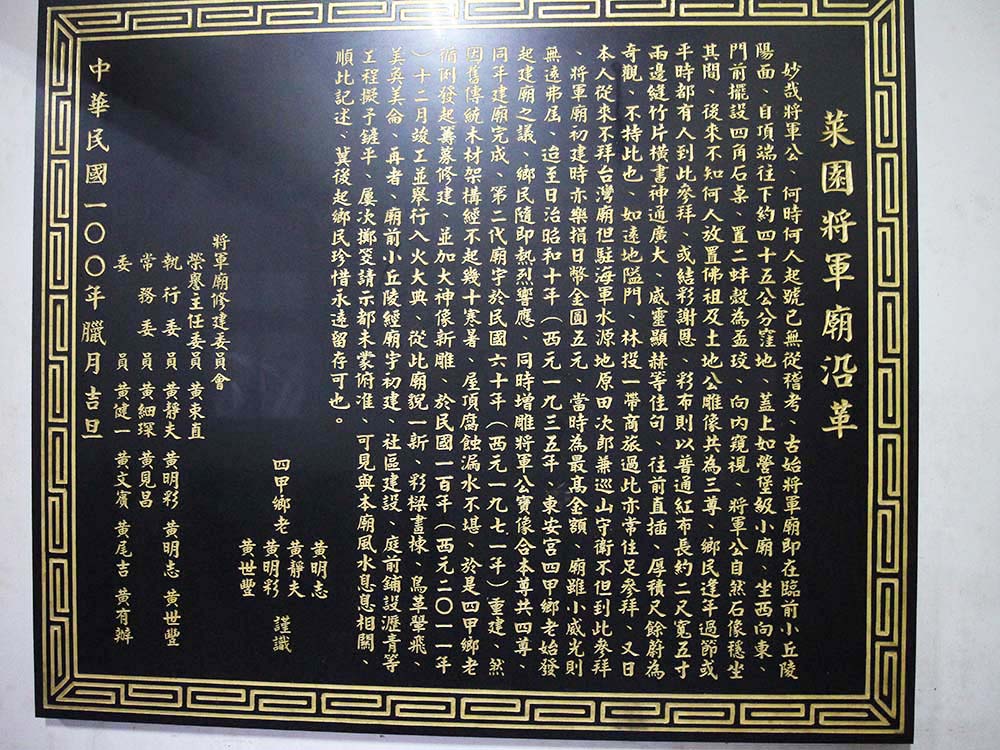 菜園將軍廟沿革
妙哉將軍公、何時何人起號已無從稽考、古始將軍廟即在臨前小丘陵
陽面、自頂端往下約四十五公分窪地、蓋上如營堡級小廟、坐西向東、
門前擺設四角石桌、置二蚌殼為盃珓、向內窺視、將軍公自然石像穩坐
其間、後來不知何人放置佛祖及土地公雕像共為三尊、鄉民逢年過節或
平時都有人到此參拜、或結彩謝恩、彩布則以普通紅布長約二尺寬五寸
兩邊縫竹片橫書神通廣大、威靈顯赫等佳句、往前直插、厚積尺餘蔚為
奇觀、不特此也、如遠地隘門、林投一帶商旅過此亦常佳足參拜、又日
本人從來不拜台灣廟但駐海軍水源地原田次郎兼巡山守衛不但到此參拜
、將軍廟初建時亦樂捐日幣金圓五元、當時為最高金額、廟雖小威光則
無遠弗屆、迨至日治昭和十年（西元一九三五年、東安宮四甲鄉老始發
起建廟之議、鄉民隨即熱烈響應、同時增雕將軍公寶像合本尊共四尊、
同年建廟完成、第二代廟宇於民國六十年（西元一九七一年）重建、然
因舊傳統木材架構經不起幾十寒暑、屋頂腐蝕漏水不堪、於是四甲鄉老
循例發起籌募修建、並加大神像新雕、於民國一百年（西元二〇一一年
）十二月竣工並舉行入火大典、從此廟貌一新、彩樑畫棟、鳥革翬飛、
美奐美侖、再者、廟前小丘陵經廟宇初建、社區建設、庭前鋪設瀝青等
工程擬予鏟平、屢次擲筊請示都未蒙俯准、可見與本廟風水息息相關、
順此記述、冀後起鄉民珍惜永遠留存可也。
四甲鄉老
黃明志
黃靜夫
黃明彩
黃世豐
謹識
將軍廟修建委員會
榮譽主任委員 黃束直
執行委員 黃靜夫 黃明彩 黃明志 黃世豐
常務委員 黃細琛 黃見昌
委員 黃健一 黃文賓 黃尾吉 黃有辦
中華民國一〇〇年臘月吉旦